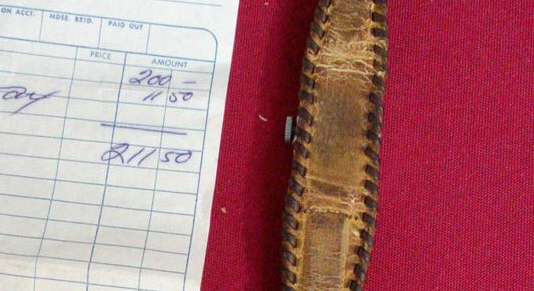 ON ACCT. MDSE. RETD. PAID OUT
PRICE AMOUNT
200 -
11 50
211 50